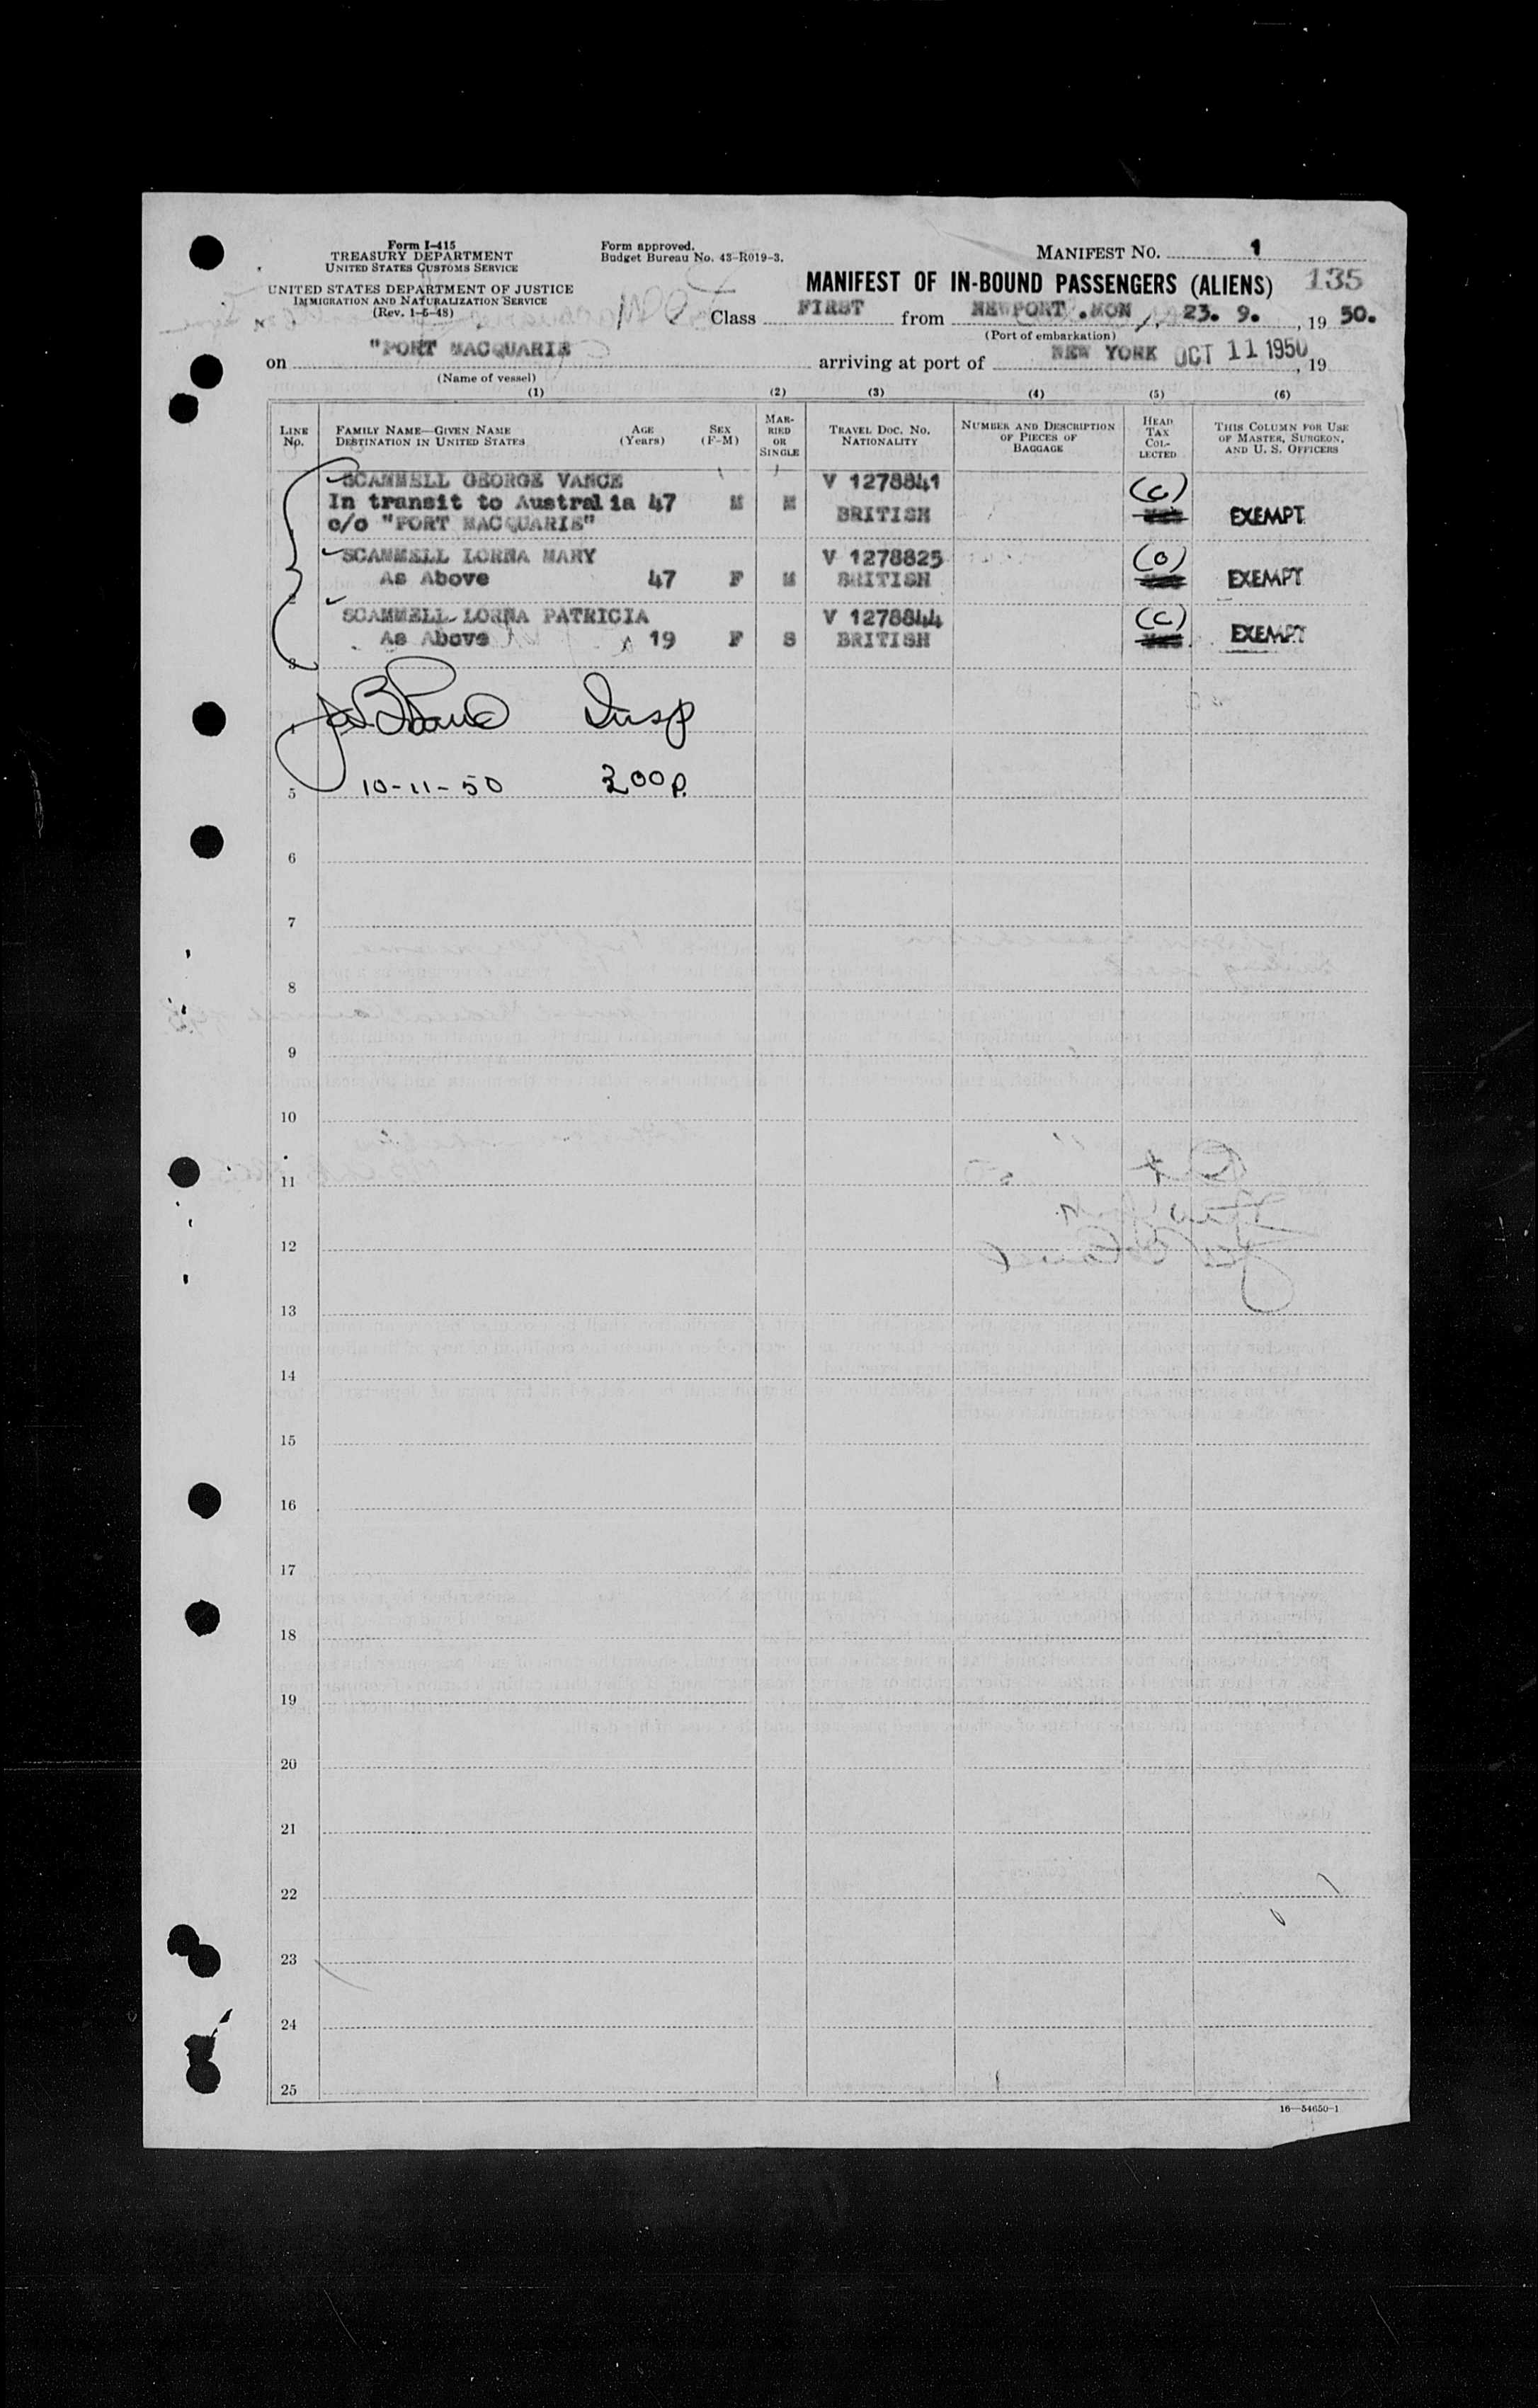 Form I-415
TREASURY DEPARTMENT
UNITED STATES CUSTOMS SERVICE
UNITED STATES DEPARTMENT OF JUSTICE
IMMIGRATION AND NATURALIZATION SERVICE
(Rev. 1-5-48)
Form approved.
Budget Bureau No. 43-R019-3.
MANIFEST NO. 1
MANIFEST OF IN-BOUND PASSENGERS (ALIENS) 135
Class FIRST from NEWPORT .MON, 23. 9., 19 50.
(Port of embarkation)
on "PORT MACQUARIE arriving at port of NEW YORK OCT 11 1950, 19
(Name of vessel)
(1) (2) (3) (4) (5) (6)
LINE No. FAMILY NAME—GIVEN NAME DESTINATION IN UNITED STATES AGE (Years) SEX (F-M) MARRIED OR SINGLE TRAVEL DOC. NO. NATIONALITY NUMBER AND DESCRIPTION OF PIECES OF BAGGAGE HEAD TAX COLLECTED THIS COLUMN FOR USE OF MASTER, SURGEON, AND U. S. OFFICERS
SCAMMELL GEORGE VANCE V 1278841
In transit to Australia 47 M M (C)
c/o "PORT MACQUARIE" BRITISH EXEMPT
SCAMMELL LORNA MARY V 1278825 (O)
2 As Above 47 F M BRITISH EXEMPT
SCAMMELL LORNA PATRICIA V 1278844 (C)
As Above 19 F S BRITISH EXEMPT
3
4 Insp
5 10-11-50 300 p.
6
7
8
9
10
11
12
13
14
15
16
17
18
19
20
21
22
23
24
25
16—54650-1